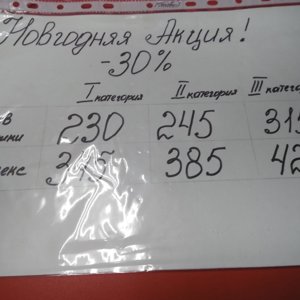 Новгодняя Акция!
-30%
I категория II категория III категор
230 245 31
345 385 42
екс